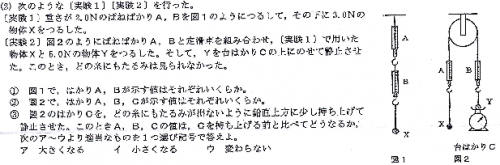 (3) 次のような［実験１］［実験２］を行った。
［実験１］重さが2.0NのばねばかりＡ，Ｂを図１のようにつるして，その下に3.0Nの
物体Ｘをつるした。
［実験２］図２のようにばねばかりＡ，Ｂと定滑車を組み合わせ，［実験１］で用いた
物体Ｘと5.0Nの物体Ｙをつるした。そして，Ｙを台はかりＣの上にのせて静止させ
た。このとき，どの糸にもたるみは見られなかった。
① 図１で，はかりＡ，Ｂが示す値はそれぞれいくらか。
② 図２で，はかりＡ，Ｂ，Ｃが示す値はそれぞれいくらか。
③ 図２のはかりＣを，どの糸にもたるみが出ないように鉛直上方に少し持ち上げて
静止させた。このときＡ，Ｂ，Ｃの値は，Ｃを持ち上げる前と比べてどうなるか。
次のア〜ウより適当なものを１つ選び記号で答えよ。
ア 大きくなる　イ 小さくなる　ウ 変わらない
A
B
X
図１
A
B
X
Y
台はかりＣ
図２